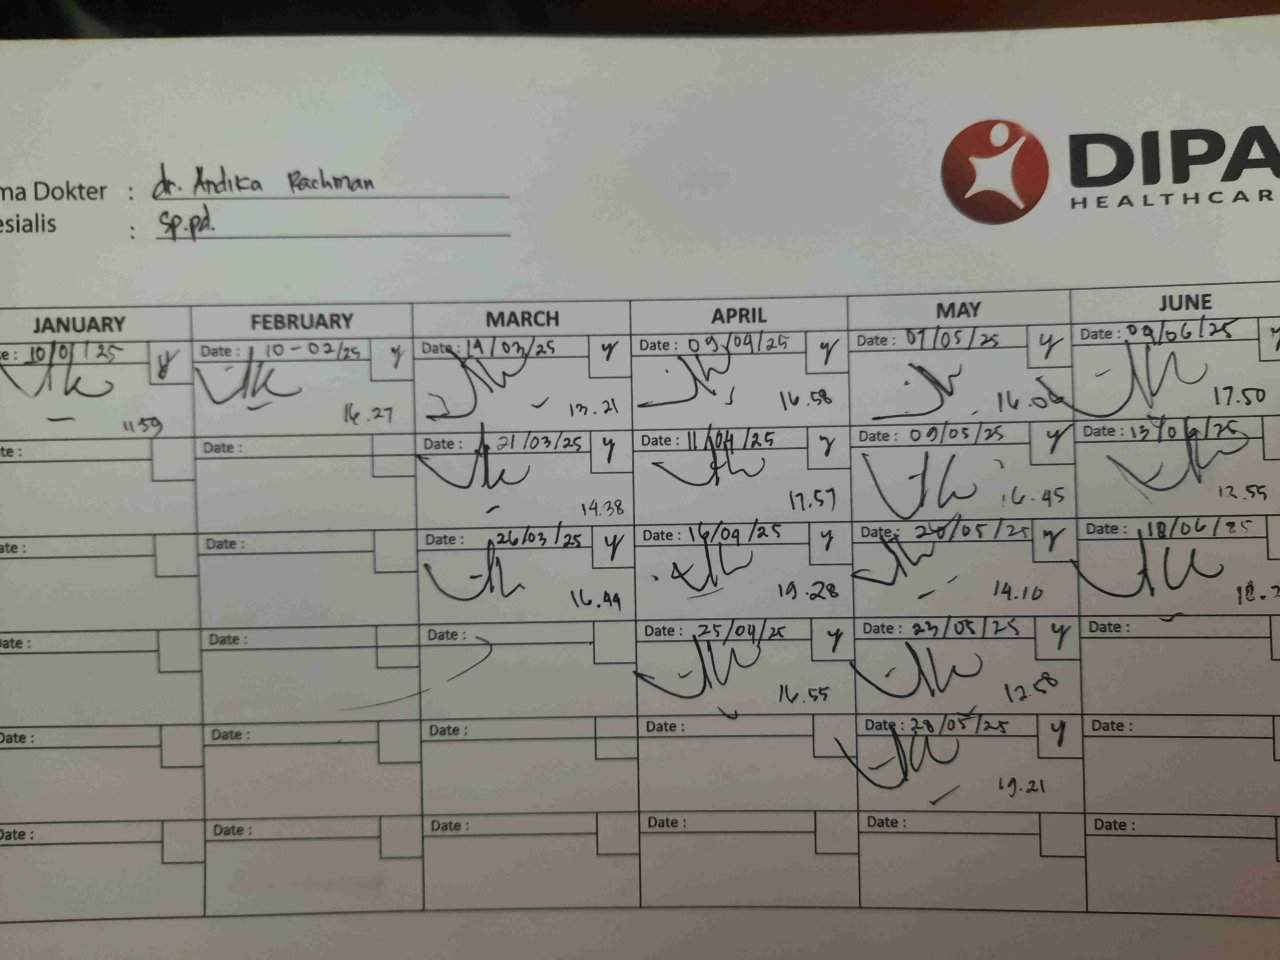 ma Dokter : dr. Andika Rachman
esialis : Sp.pd.
DIPA
HEALTHCAR
JANUARY FEBRUARY MARCH APRIL MAY JUNE
e: 10/01/25 y Date: 10-02/25 y Date: 19/03/25 y Date: 09/04/25 y Date: 07/05/25 y Date: 09/06/25 y
11.59 16.27 13.21 16.58 17.50
te: Date: Date: 21/03/25 y Date: 11/04/25 y Date: 09/05/25 y Date: 13/06/25
14.38 17.57 16.45 13.55
ate: Date: Date: 26/03/25 y Date: 16/04/25 y Date: 20/05/25 y Date: 18/06/25
16.44 19.28 14.10
ate: Date: Date: Date: 25/04/25 y Date: 23/05/25 y Date:
16.55 12.58
Date: Date: Date: Date: Date: 28/05/25 y Date:
19.21
Date: Date: Date: Date: Date: Date: